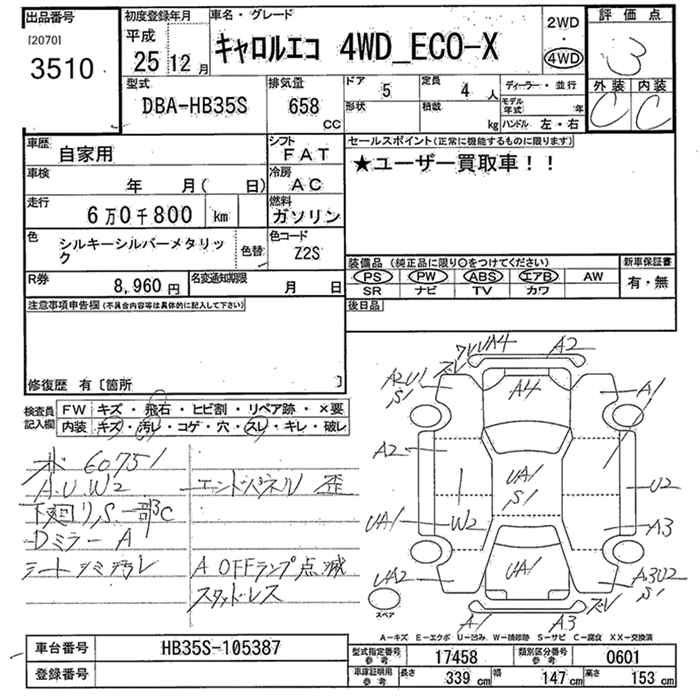 出品番号
[2070]
3510
初度登録年月
平成
25 12 月
車名・グレード
キャロルエコ 4WD_ECO-X
2WD
・
4WD
評価点
3
外装 内装
C C
型式
DBA-HB35S
排気量
658
CC
ドア
5
定員
4 人
形状
積載
kg
ディーラー・並行
モデル年式
年
ハンドル 左・右
車歴
自家用
シフト
FAT
車検
年 月( 日)
冷房
AC
走行
6万0千800 km
燃料
ガソリン
色
シルキーシルバーメタリック
色替
色コード
Z2S
R券
8,960 円
名変通知期限
月 日
セールスポイント(正常に機能するものに限ります)
★ユーザー買取車!!
装備品 (純正品に限り○をつけてください)
PS PW ABS エアB AW
SR ナビ TV カワ
新車保証書
有・無
後日品
注意事項申告欄(不具合内容等は具体的に記入して下さい)
修復歴 有〔箇所 〕
検査員記入欄
FW キズ・飛石・ヒビ割・リペア跡・×要
内装 キズ・汚レ・コゲ・穴・スレ・キレ・破レ
60751
A.U.W2 エンドパネル 歪
下廻リ,S.一部C
Dミラー A
シートシミ汚レ A OFFランプ点滅
スタッドレス
A2
A2U1
S1
A4
A1
A2
UA1
S1
W2
U2
UA1
A3
UA2
UA1
A3U2
S1
スペア
A1
A3
A-キズ E-エクボ U-凹み W-補修跡 S-サビ C-腐食 XX-交換済
車台番号
HB35S-105387
登録番号
型式指定番号
参考
17458
類別区分番号
参考
0601
車庫証明用
参考
長さ 339 cm 幅 147 cm 高さ 153 cm